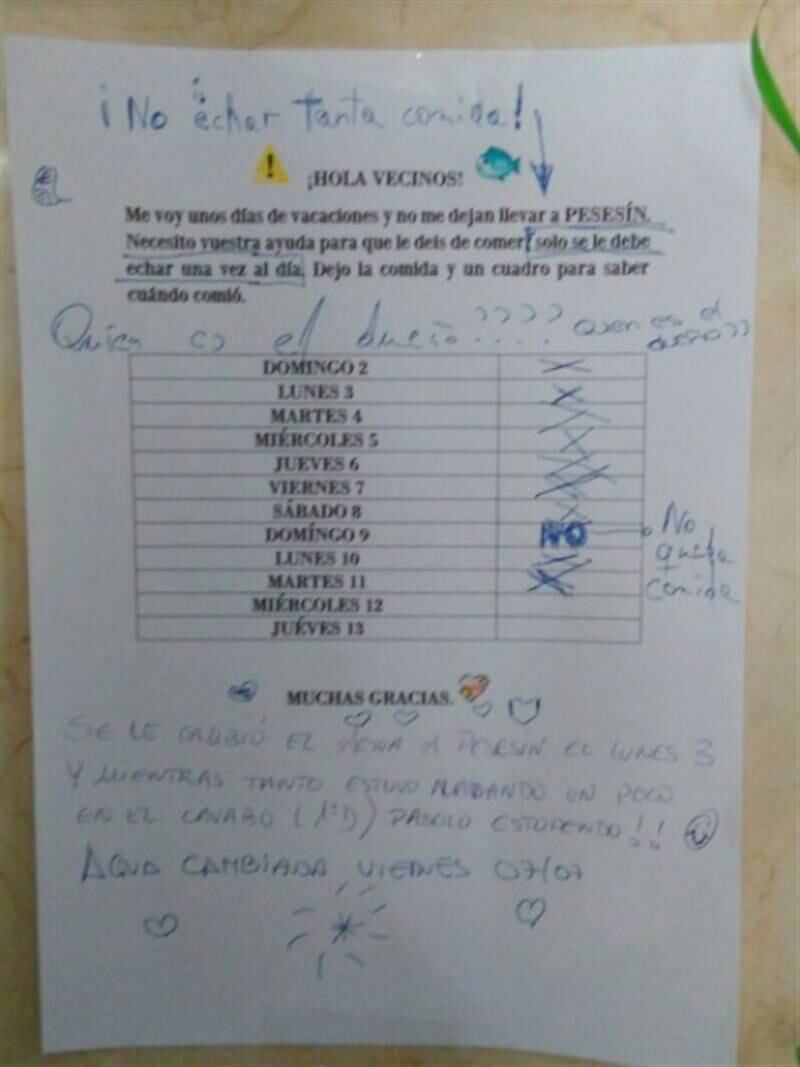 ¡No echar tanta comida!
¡HOLA VECINOS!
Me voy unos días de vacaciones y no me dejan llevar a PESESÍN.
Necesito vuestra ayuda para que le deis de comer, solo se le debe
echar una vez al día. Dejo la comida y un cuadro para saber
cuándo comió.
Quien es el dueño????
DOMINGO 2 X
LUNES 3 X
MARTES 4 X
MIÉRCOLES 5 X
JUEVES 6 X
VIERNES 7 X
SÁBADO 8 X
DOMÍNGO 9 NO
No queda comida
LUNES 10 X
MARTES 11 X
MIÉRCOLES 12
JUÉVES 13
MUCHAS GRACIAS.
SE LE CAMBIÓ EL AGUA A PESESÍN EL LUNES 3
Y MIENTRAS TANTO ESTUVO NADANDO UN POCO
EN EL LAVABO (1ºD) PASOLO ESTUPENDO!!
AGUA CAMBIADA VIERNES 07/07